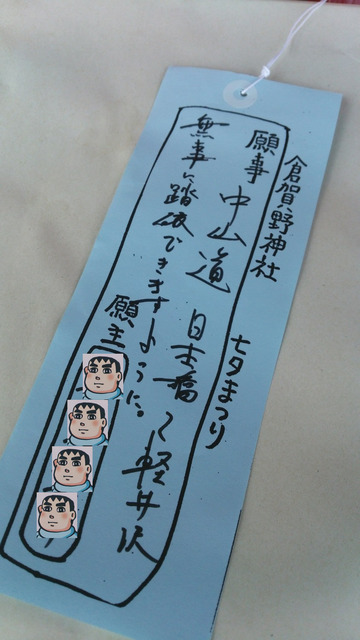 倉賀野神社 七夕まつり
願事 中山道 日本橋〜軽井沢
無事に踏破できますように。
願主